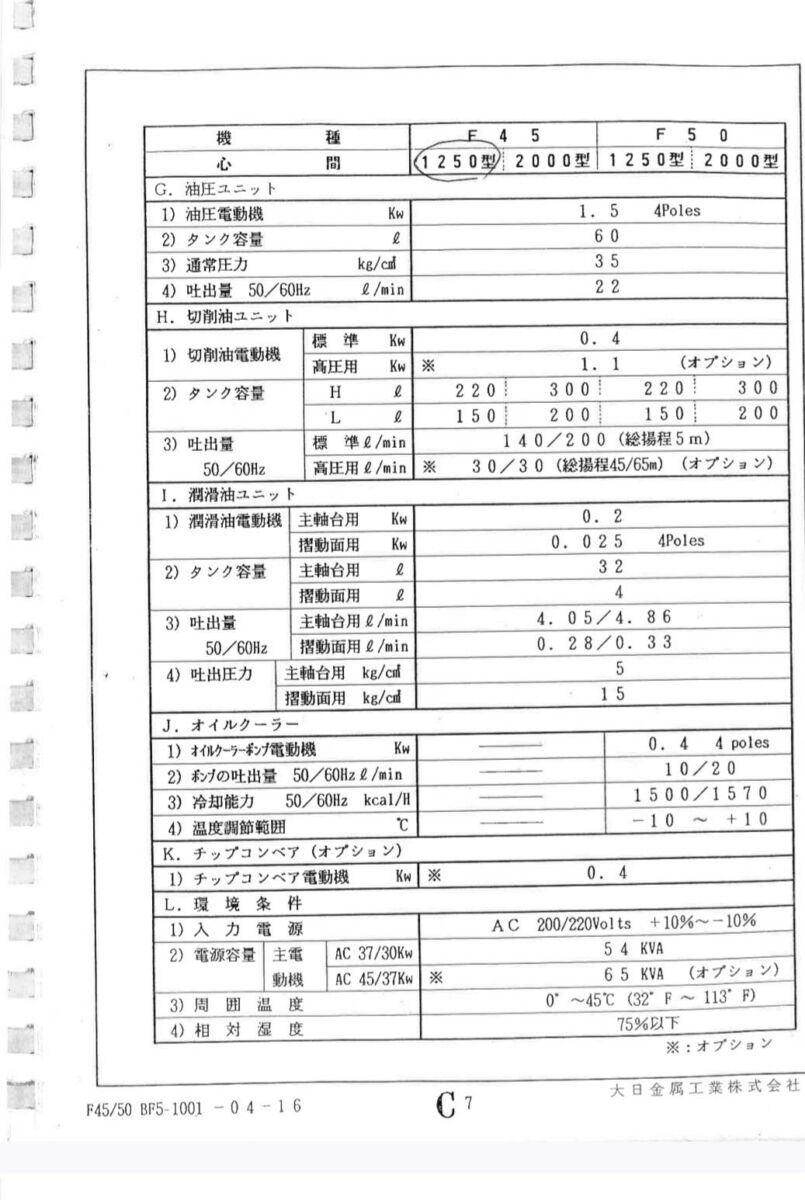 機 種 F 4 5 F 5 0
心 間 1250型 2000型 1250型 2000型
G. 油圧ユニット
1) 油圧電動機 Kw 1. 5 4Poles
2) タンク容量 ℓ 60
3) 通常圧力 kg/c㎡ 35
4) 吐出量 50/60Hz ℓ/min 22
H. 切削油ユニット
1) 切削油電動機 標 準 Kw 0. 4
高圧用 Kw ※ 1. 1 (オプション)
2) タンク容量 H ℓ 220 300 220 300
L ℓ 150 200 150 200
3) 吐出量 標 準 ℓ/min 140/200 (総揚程5m)
50/60Hz 高圧用 ℓ/min ※ 30/30 (総揚程45/65m) (オプション)
I. 潤滑油ユニット
1) 潤滑油電動機 主軸台用 Kw 0. 2
摺動面用 Kw 0. 025 4Poles
2) タンク容量 主軸台用 ℓ 32
摺動面用 ℓ 4
3) 吐出量 主軸台用 ℓ/min 4. 05/4. 86
50/60Hz 摺動面用 ℓ/min 0. 28/0. 33
4) 吐出圧力 主軸台用 kg/c㎡ 5
摺動面用 kg/c㎡ 15
J. オイルクーラー
1) ｵｲﾙｸｰﾗｰﾎﾟﾝﾌﾟ電動機 Kw ―― 0. 4 4 poles
2) ﾎﾟﾝﾌﾟの吐出量 50/60Hz ℓ/min ―― 10/20
3) 冷却能力 50/60Hz kcal/H ―― 1500/1570
4) 温度調節範囲 ℃ ―― -10 ～ +10
K. チップコンベア (オプション)
1) チップコンベア電動機 Kw ※ 0. 4
L. 環 境 条 件
1) 入 力 電 源 AC 200/220Volts +10%～-10%
2) 電源容量 主電 AC 37/30Kw 54 KVA
動機 AC 45/37Kw ※ 65 KVA (オプション)
3) 周 囲 温 度 0° ～45℃ (32° F ～ 113° F)
4) 相 対 湿 度 75%以下
※:オプション
大日金属工業株式会社
F45/50 BF5-1001 -04-16 C 7